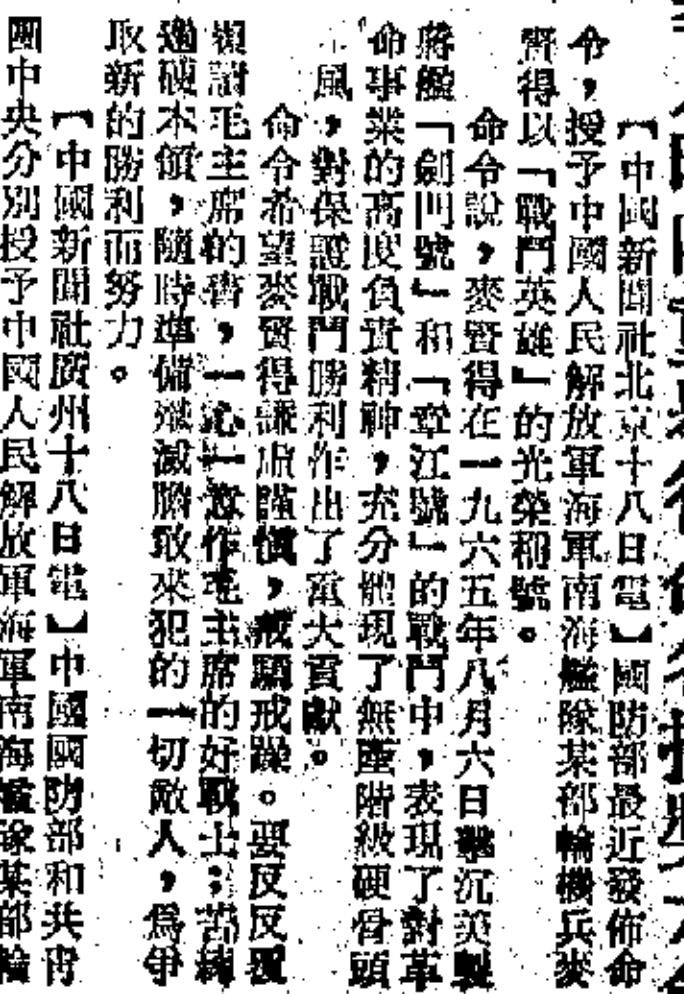 【中國新聞社北京十八日電】國防部最近發佈命
令，授予中國人民解放軍海軍南海艦隊某部輪機兵麥
賢得以「戰鬥英雄」的光榮稱號。
命令說，麥賢得在一九六五年八月六日擊沉美製
蔣艦「劍門號」和「章江號」的戰鬥中，表現了對革
命事業的高度負責精神，充分體現了無產階級硬骨頭
風，對保證戰鬥勝利作出了重大貢獻。
命令希望麥賢得謙虛謹慎，戒驕戒躁。要反反覆
覆讀毛主席的書，一心一意作毛主席的好戰士；苦練
過硬本領，隨時準備殲滅膽敢來犯的一切敵人，爲爭
取新的勝利而努力。
【中國新聞社廣州十八日電】中國國防部和共青
團中央分別授予中國人民解放軍海軍南海艦隊某部輪